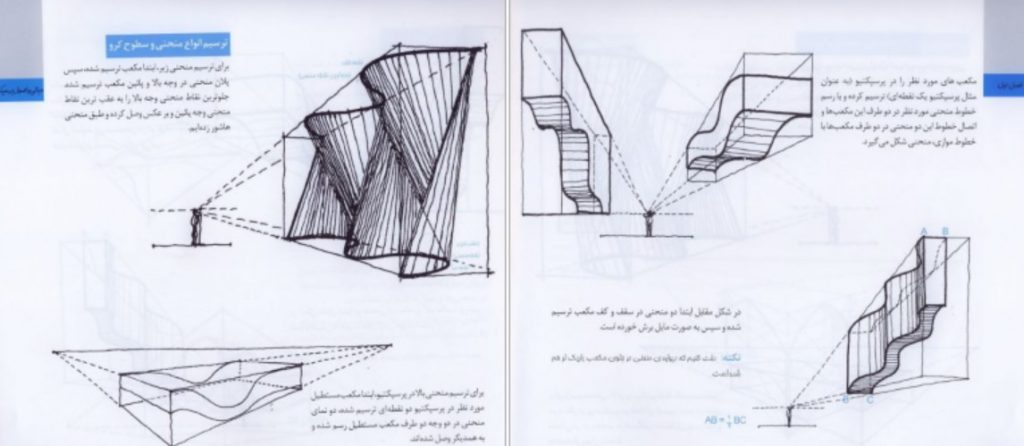 ترسیم انواع منحنی و سطوح کرو
برای ترسیم منحنی زیر، ابتدا مکعب ترسیم شده، سپس
پلان منحنی در وجه بالا و پائین مکعب ترسیم شده.
جلوترین نقاط منحنی وجه بالا را به عقب ترین نقاط
منحنی وجه پائین و بر عکس وصل کرده و طبق منحنی
هاشور زده‌ایم.
برای ترسیم منحنی بالا در پرسپکتیو، ابتدا مکعب مستطیل
مورد نظر در پرسپکتیو دو نقطه‌ای ترسیم شده، دو نمای
منحنی در دو وجه دو طرف مکعب مستطیل رسم شده و
به همدیگر وصل شده‌اند.
مکعب های مورد نظر را در پرسپکتیو (به عنوان
مثال پرسپکتیو یک نقطه‌ای) ترسیم کرده و با رسم
خطوط منحنی مورد نظر در دو طرف این مکعب‌ها و
اتصال خطوط این دو منحنی در دو طرف مکعب‌ها با
خطوط موازی، منحنی شکل می‌گیرد.
A B
در شکل مقابل ابتدا دو منحنی در سقف و کف مکعب ترسیم
شده و سپس به صورت مایل برش خورده است.
نکته: دقت کنیم که
B C
AB = BC